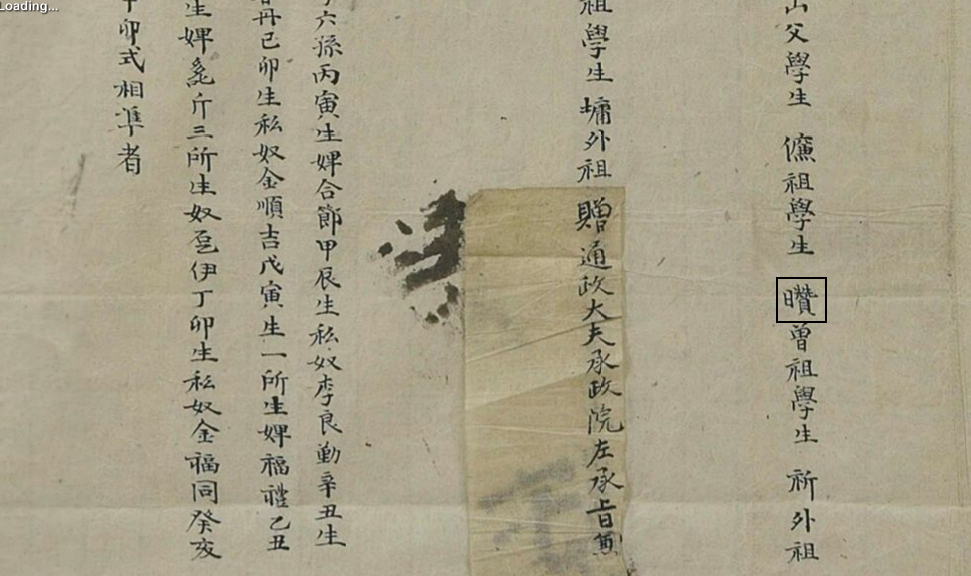 Loading...
父學生 祖學生 曾祖學生 祈外祖
祖學生 墉外祖 贈通政大夫承政院左承旨兼
六孫丙寅生婢合節甲辰生私奴李良勤辛丑生
丹己卯生私奴金順吉戊寅生一所生婢福禮乙丑
生婢斤三所生奴伊丁卯生私奴金福同癸亥
卯式相準者